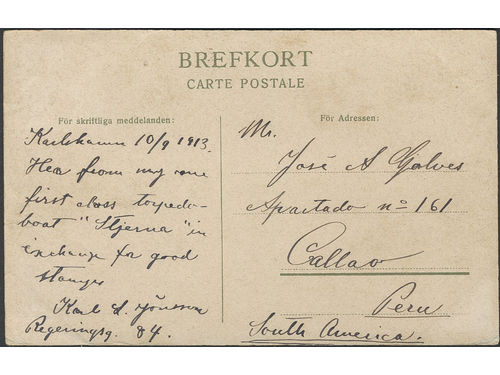 BREFKORT
CARTE POSTALE
För skriftliga meddelanden:
För Adressen:
Karlshamn 10/9 1913.
Her from my one
first class torpedo-
boat "Stjerna" in
exchange for good
stamps
Karl L. Jönsson
Regeringsg. 84.
Mr.
José A Galves
Apartado no 161
Callao
Peru
South America.